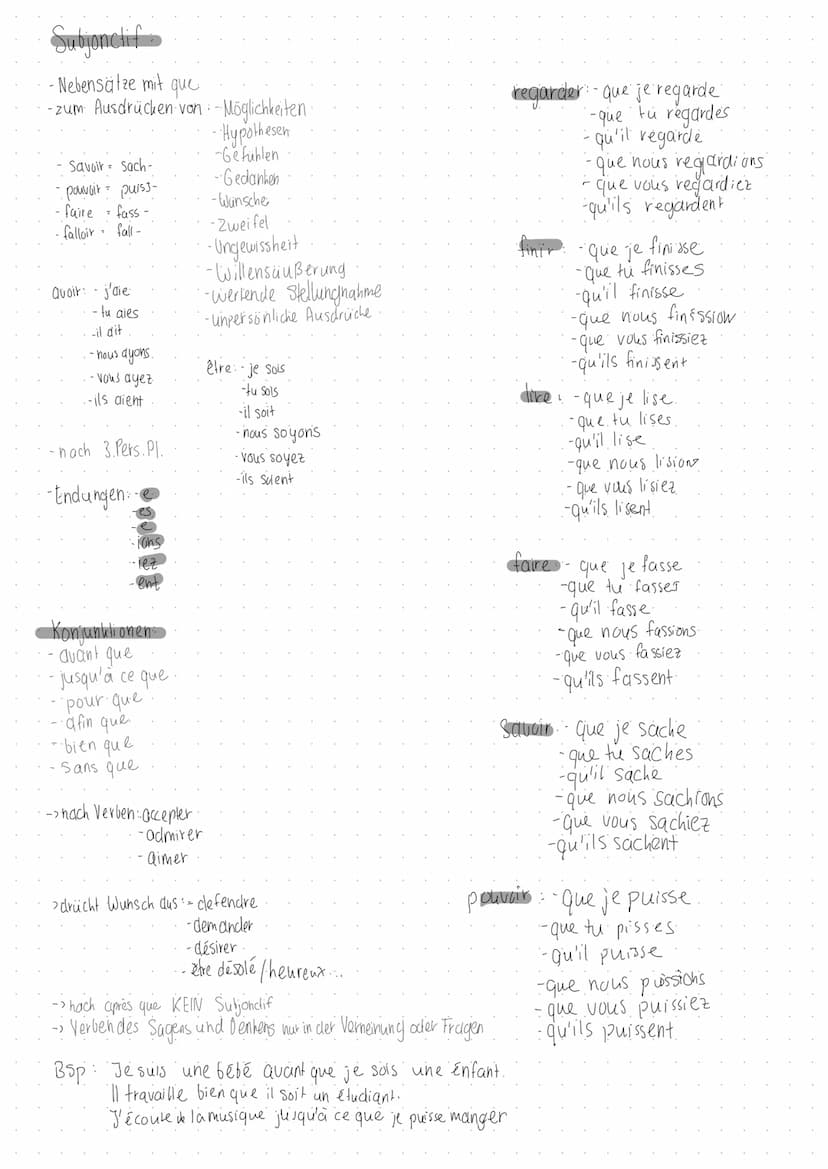 Subjonctif
- Nebensätze mit que
- zum Ausdrücken von: - Möglichkeiten
- Hypothesen
- Gefühlen
- Gedanken
- Wünsche
- Zweifel
- Ungewissheit
- Willensäußerung
- wertende Stellungnahme
- unpersönliche Ausdrücke
- savoir = sach-
- pouvoir = puiss-
- faire = fass-
- falloir = fall-
avoir: - j'aie
- tu aies
- il ait
- nous ayons
- vous ayez
- ils aient
être: - je sois
- tu sois
- il soit
- nous soyons
- vous soyez
- ils soient
- nach 3.Pers.Pl.
- Endungen: - e
- es
- e
- ions
- iez
- ent
Konjunktionen:
- avant que
- jusqu'à ce que
- pour que
- afin que
- bien que
- sans que
-> nach Verben: accepter
- admirer
- aimer
> drückt Wunsch aus: - defendre
- demander
- désirer
- être désolé/heureux...
-> nach après que KEIN Subjonctif
-> Verben des Sagens und Denkens nur in der Verneinung oder Fragen
Bsp: Je suis une bébé avant que je sois une enfant.
Il travaille bien que il soit un étudiant.
J'écoute la musique jusqu'à ce que je puisse manger
regarder: - que je regarde
- que tu regardes
- qu'il regarde
- que nous regardions
- que vous regardiez
- qu'ils regardent
finir: - que je finisse
- que tu finisses
- qu'il finisse
- que nous
- que vous finissiez
- qu'ils finissent
lire: - que je lise
- que tu lises
- qu'il lise
- que nous lisions
- que vous lisiez
- qu'ils lisent
faire: - que je fasse
- que tu fasses
- qu'il fasse
- que nous fassions
- que vous fassiez
- qu'ils fassent
savoir: - que je sache
- que tu saches
- qu'il sache
- que nous sachions
- que vous sachiez
- qu'ils sachent
pouvoir: - que je puisse
- que tu pisses
- qu'il puisse
- que nous puissions
- que vous puissiez
- qu'ils puissent